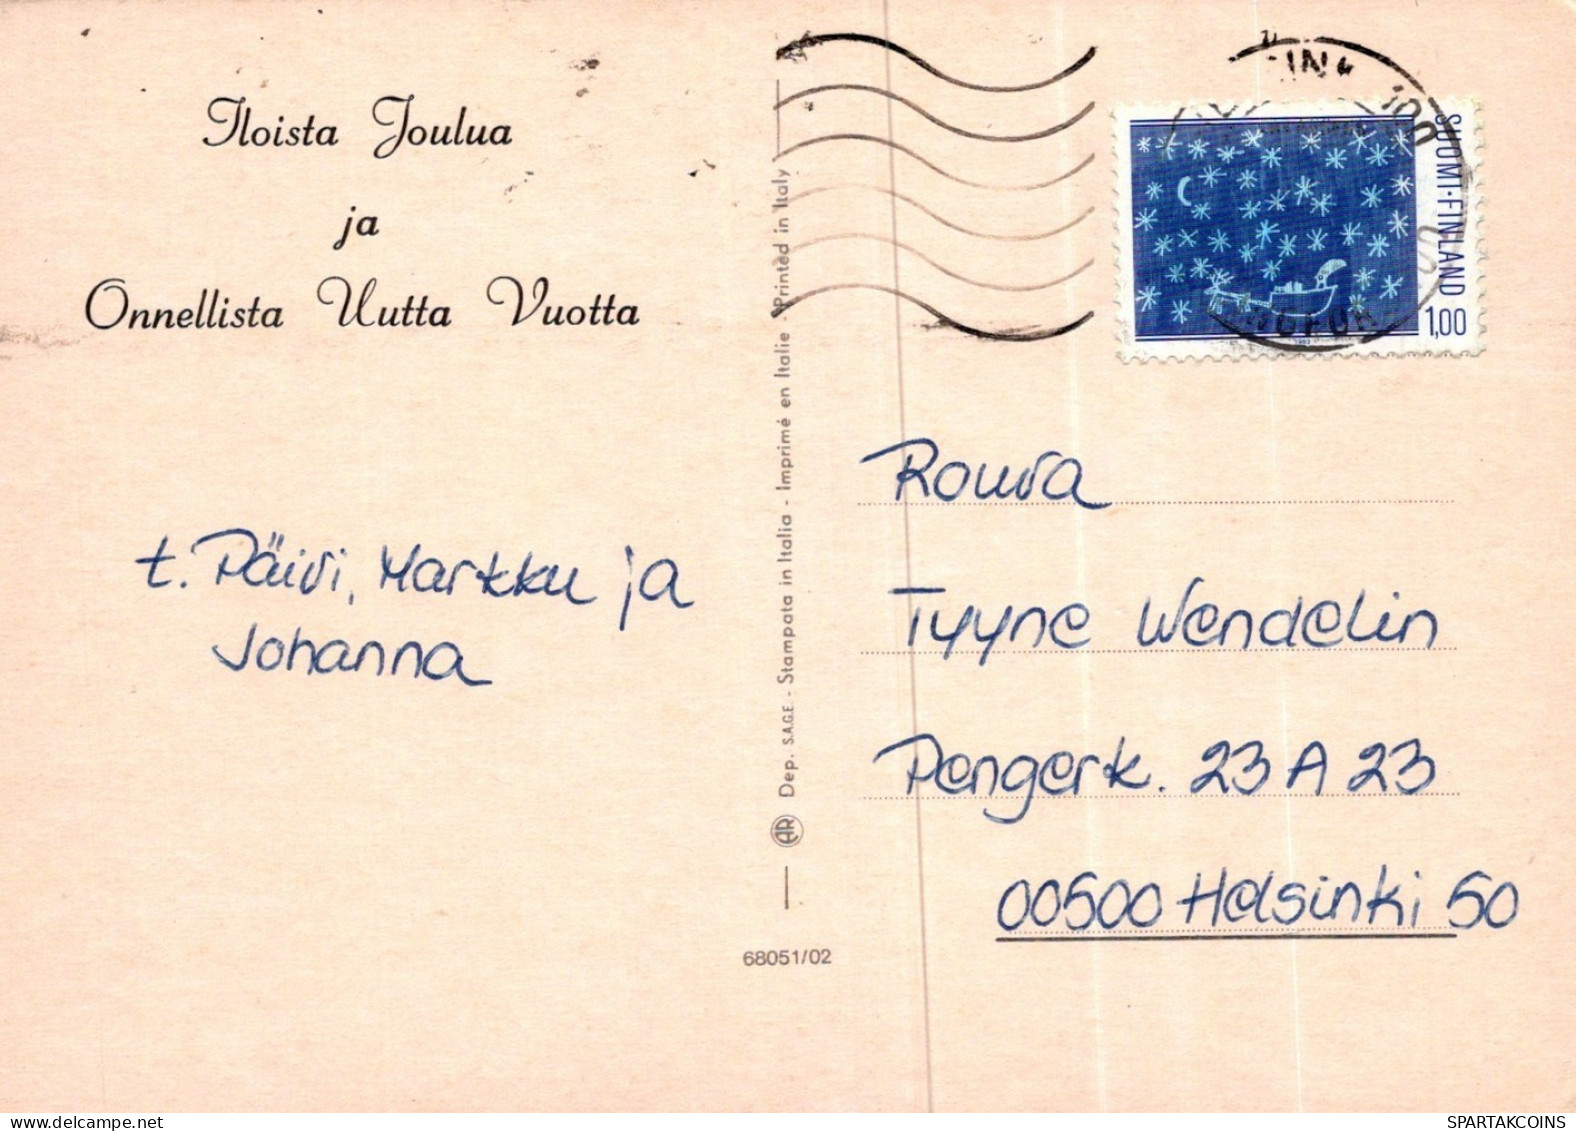 Iloista Joulua
ja
Onnellista Uutta Vuotta
t. Päivi, Markku ja
Johanna
Dep. S.A.G.E. - Stampata in Italia - Imprimé en Italie - Printed in Italy
AR
68051/02
SUOMI·FINLAND
1,00
Rouva
Tyyne Wendelin
Pengerk. 23 A 23
00500 Helsinki 50
SPARTAKCOINS